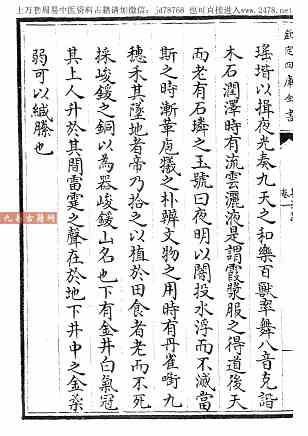 上万部周易中医资料古籍请加微信:jd78768 也可直接进入www.2478.net
欽定四庫全書
瑶堦以揖夜光奏九天之和樂百獸率舞八音克諧
木石潤澤時有流雲灑液是謂霞漿服之得道後天
而老有石璘之玉號曰夜明以闇投水浮而不滅當
斯之時漸革庖犧之朴辨文物之用時有丹雀啣九
穗禾其墜地者帝乃拾之以植於田食者老而不死
採峻鍰之銅以為器峻鍰山名也下有金井白氣冠
其上人升於其間雷霆之聲在於地下井中之金柔
弱可以緘縢也
九易古籍网